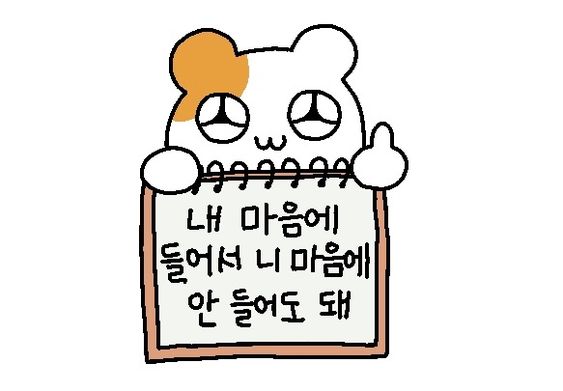 내 마음에
들어서 니 마음에
안 들어도 돼